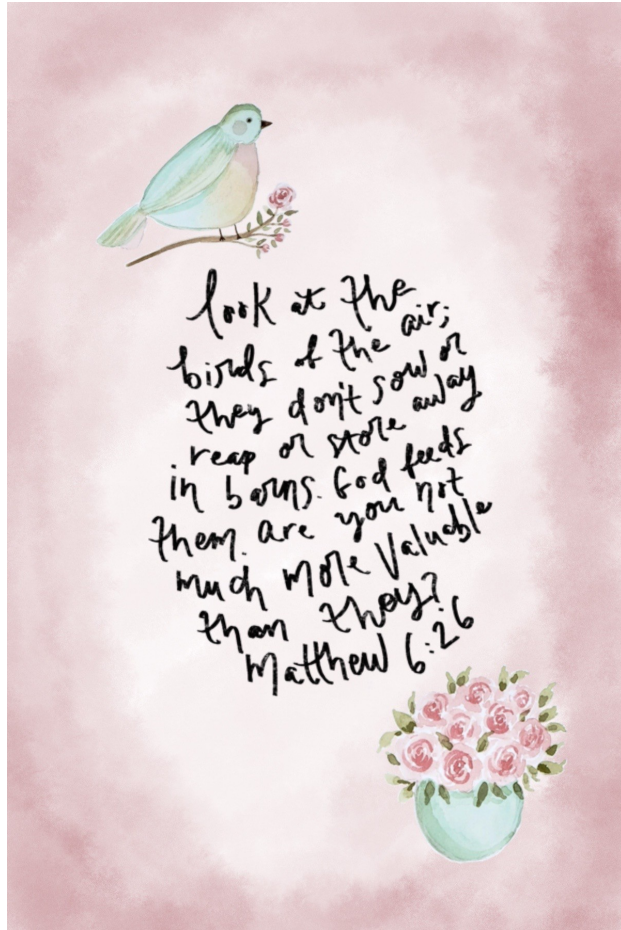 look at the
birds of the air;
they don't sow or
reap or store away
in barns. God feeds
them. are you not
much more valuable
than they?
Matthew 6:26